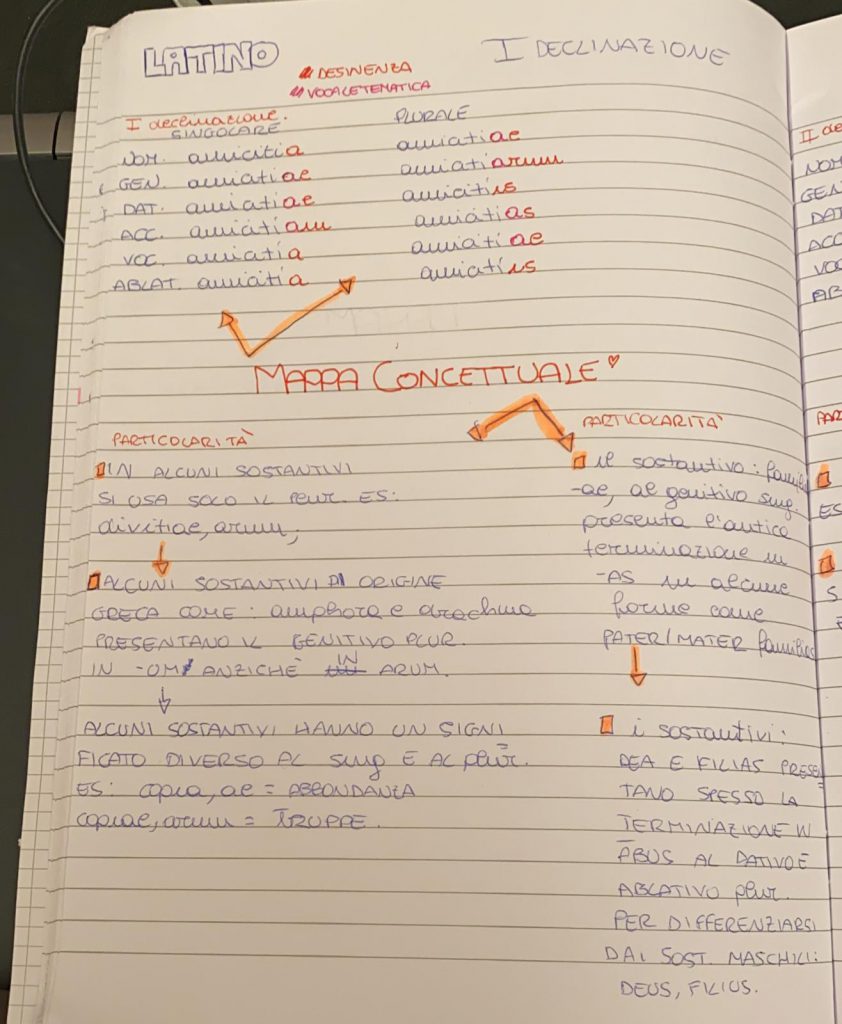 LATINO
I DECLINAZIONE
DESINENZA
VOCALE TEMATICA
I declinazione.
SINGOLARE
PLURALE
NOM. amicitia amicitiae
GEN. amicitiae amicitiarum
DAT. amicitiae amicitiis
ACC. amicitiam amicitias
VOC. amicitia amicitiae
ABLAT. amicitia amicitiis
MAPPA CONCETTUALE
PARTICOLARITÀ
IN ALCUNI SOSTANTIVI
SI USA SOLO IL PLUR. ES:
divitiae, arum;
ALCUNI SOSTANTIVI DI ORIGINE
GRECA COME: amphora e drachma
PRESENTANO IL GENITIVO PLUR.
IN -OM ANZICHÈ IN ARUM.
ALCUNI SOSTANTIVI HANNO UN SIGNI
FICATO DIVERSO AL sing E AL plur.
ES: copia, ae = ABBONDANZA
copiae, arum = TRUPPE.
PARTICOLARITÀ
il sostantivo: famili
-ae, ae genitivo sing.
presenta l'antica
terminazione in
-AS in alcune
forme come
PATER/MATER familias
i sostantivi:
DEA E FILIAS PRESE
TANO SPESSO LA
TERMINAZIONE IN
ABUS AL DATIVO E
ABLATIVO plur.
PER DIFFERENZIARSI
DAI SOST. MASCHILI:
DEUS, FILIUS.
II de
NOM
GEN
DAT
ACC
VOC
AB
PAR
ES
S